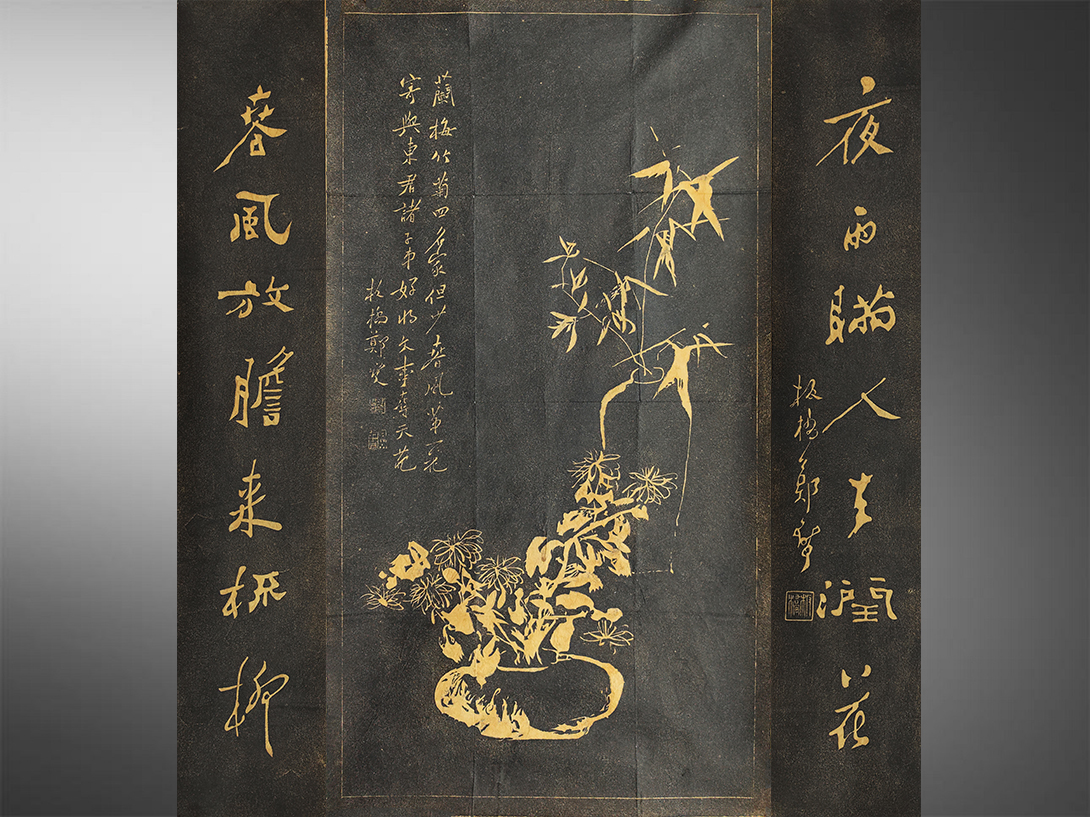 夜雨瞞人去潤花
板橋鄭燮
蘭梅竹菊四名家但少春風第一花
寄與東君諸子弟好將文事奪天葩
板橋鄭燮
春風放膽来梳柳